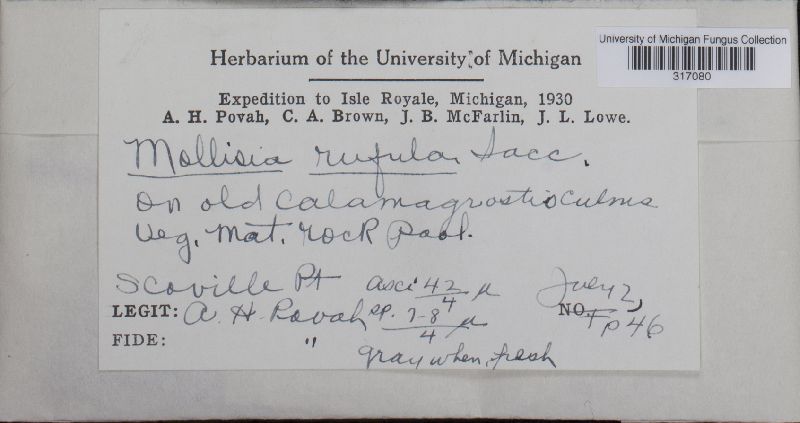 University of Michigan Fungus Collection
317080
Herbarium of the University of Michigan
Expedition to Isle Royale, Michigan, 1930
A. H. Povah, C. A. Brown, J. B. McFarlin, J. L. Lowe.
Mollisia rufula Sacc.
On old Calamagrostis culms
Veg. Mat. rock pool.
Scoville Pt asci 42/4 µ July 2,
LEGIT: A. H. Povah sp. 7-8/4 µ NO. Fp46
FIDE: "
gray when fresh